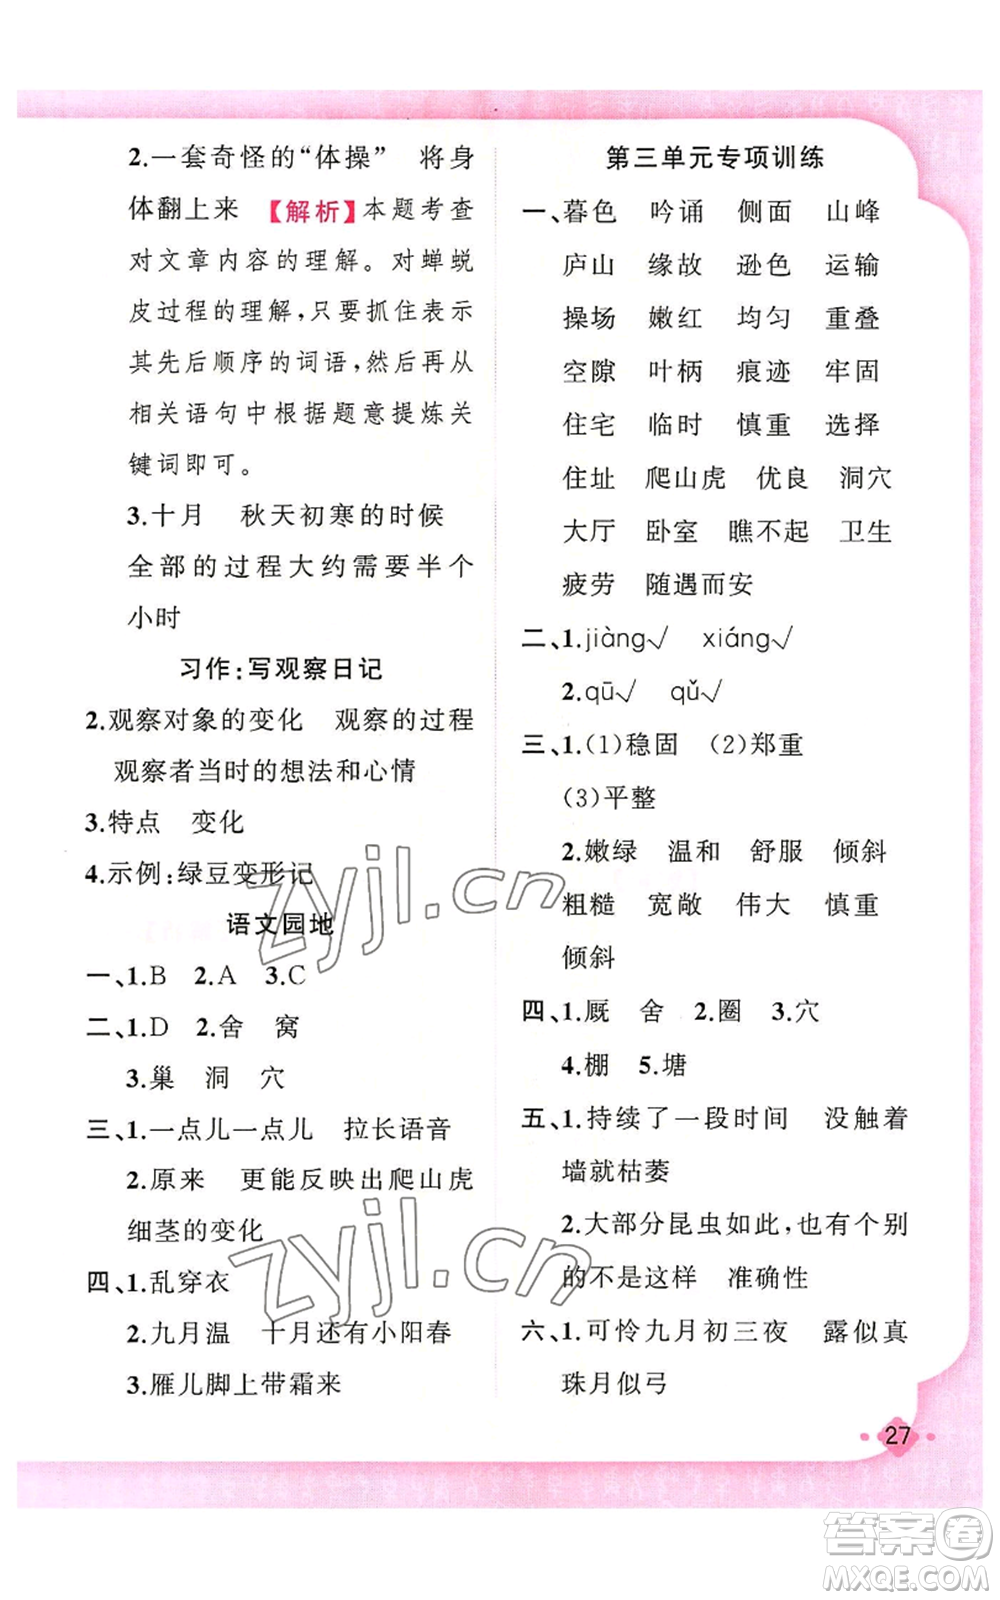 2.一套奇怪的“体操”　将身
体翻上来　【解析】本题考查
对文章内容的理解。对蝉蜕
皮过程的理解,只要抓住表示
其先后顺序的词语,然后再从
相关语句中根据题意提炼关
键词即可。
3.十月　秋天初寒的时候
全部的过程大约需要半个
小时
习作:写观察日记
2.观察对象的变化　观察的过程
观察者当时的想法和心情
3.特点　变化
4.示例:绿豆变形记
语文园地
一、1.B　2.A　3.C
二、1.D　2.舍　窝
3.巢　洞　穴
三、1.一点儿一点儿　拉长语音
2.原来　更能反映出爬山虎
细茎的变化
四、1.乱穿衣
2.九月温　十月还有小阳春
3.雁儿脚上带霜来
第三单元专项训练
一、暮色　吟诵　侧面　山峰
庐山　缘故　逊色　运输
操场　嫩红　均匀　重叠
空隙　叶柄　痕迹　牢固
住宅　临时　慎重　选择
住址　爬山虎　优良　洞穴
大厅　卧室　瞧不起　卫生
疲劳　随遇而安
二、1.jiàng√　xiáng√
2.qū√　qǔ√
三、1.(1)稳固　(2)郑重
(3)平整
2.嫩绿　温和　舒服　倾斜
粗糙　宽敞　伟大　慎重
倾斜
四、1.厩　舍　2.圈　3.穴
4.棚　5.塘
五、1.持续了一段时间　没触着
墙就枯萎
2.大部分昆虫如此,也有个别
的不是这样　准确性
六、1.可怜九月初三夜　露似真
珠月似弓
27
zyjl.cn
zyjl.cn
答案卷
MXQE.COM